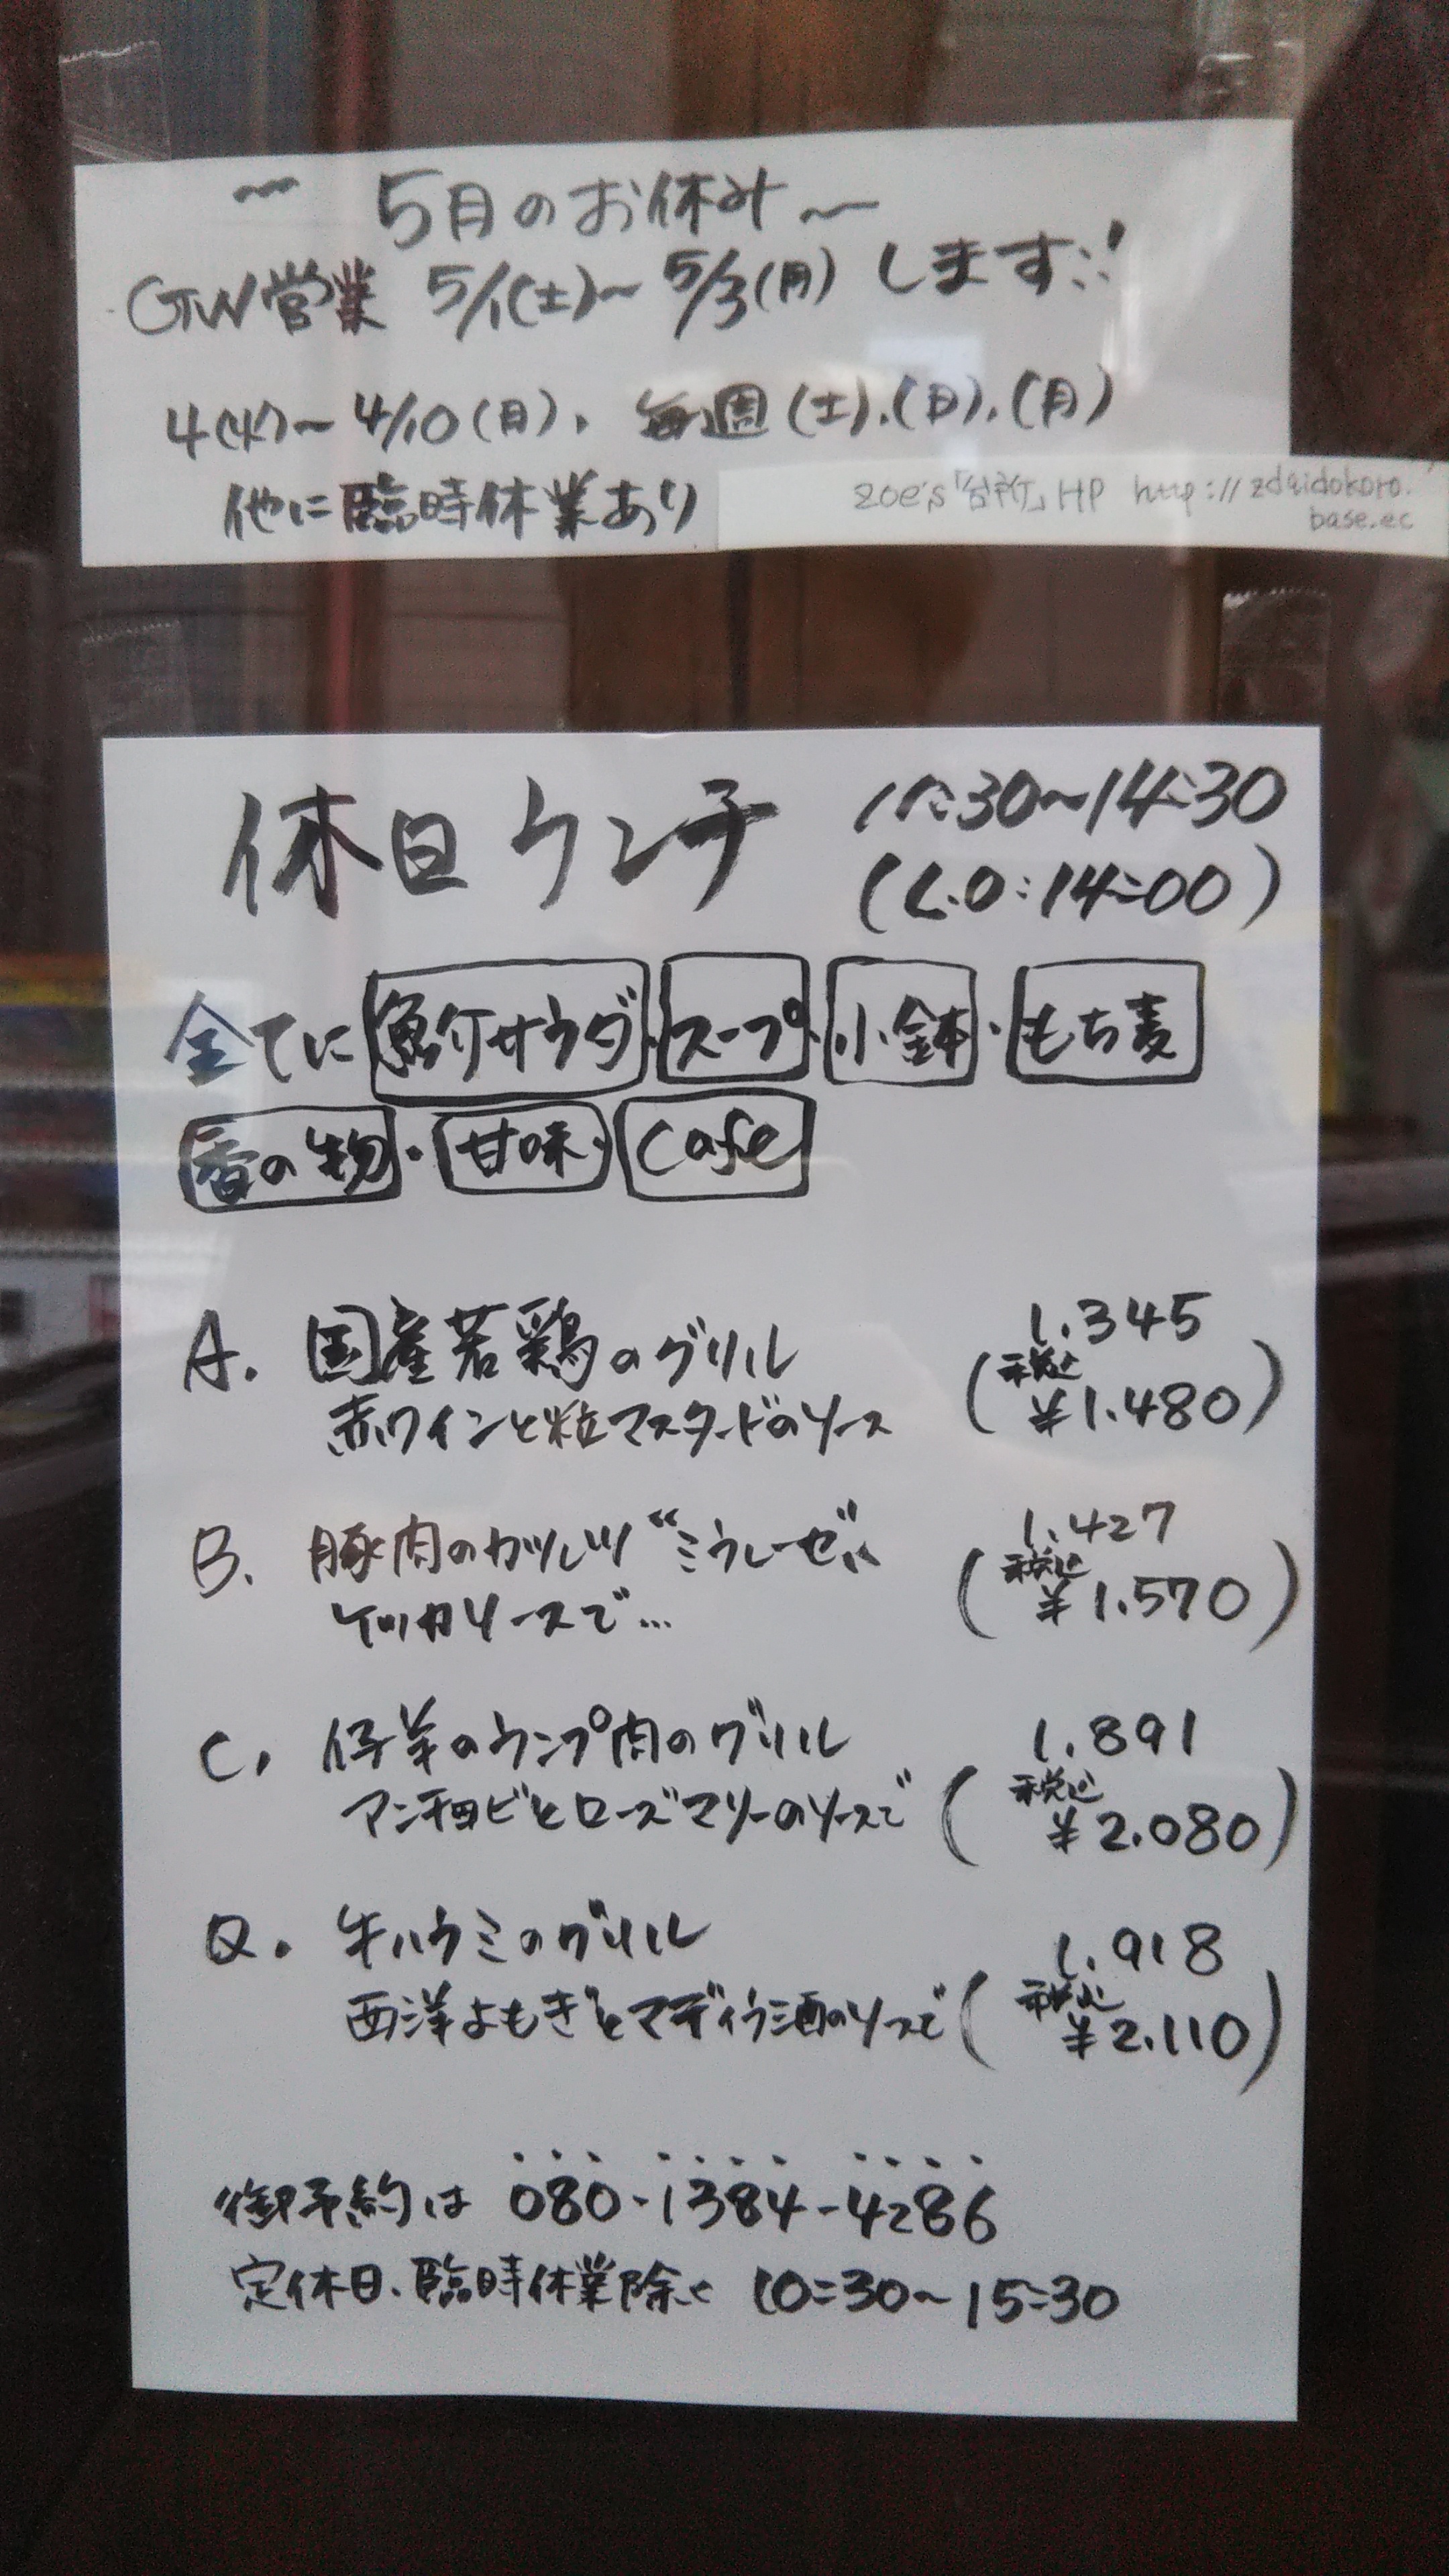 ~ 5月のお休み ~
GW営業 5/1(土)~5/3(月)します!!
4/10(月)、毎週(土).(日).(月)
他に臨時休業あり
zoe's「台所」HP http://zdaidokoro.
base.ec
休日ランチ 11:30~14:30
(L.O:14:00)
全てに 魚介サラダ・スープ・小鉢・もち麦
香の物・甘味・Cafe
A. 国産若鶏のグリル 1.345
赤ワインと粒マスタードのソース (税込 ¥1.480)
B. 豚肉のカツレツ“ミラネーゼ” 1.427
ケッカソースで… (税込 ¥1.570)
C. 仔羊のランプ肉のグリル 1.891
アンチョビとローズマリーのソースで (税込 ¥2.080)
Q. 牛ハラミのグリル 1.918
西洋よもぎとマディラ酒のソースで (税込 ¥2.110)
御予約は 080-1384-4286
定休日、臨時休業除く 10:30~15:30